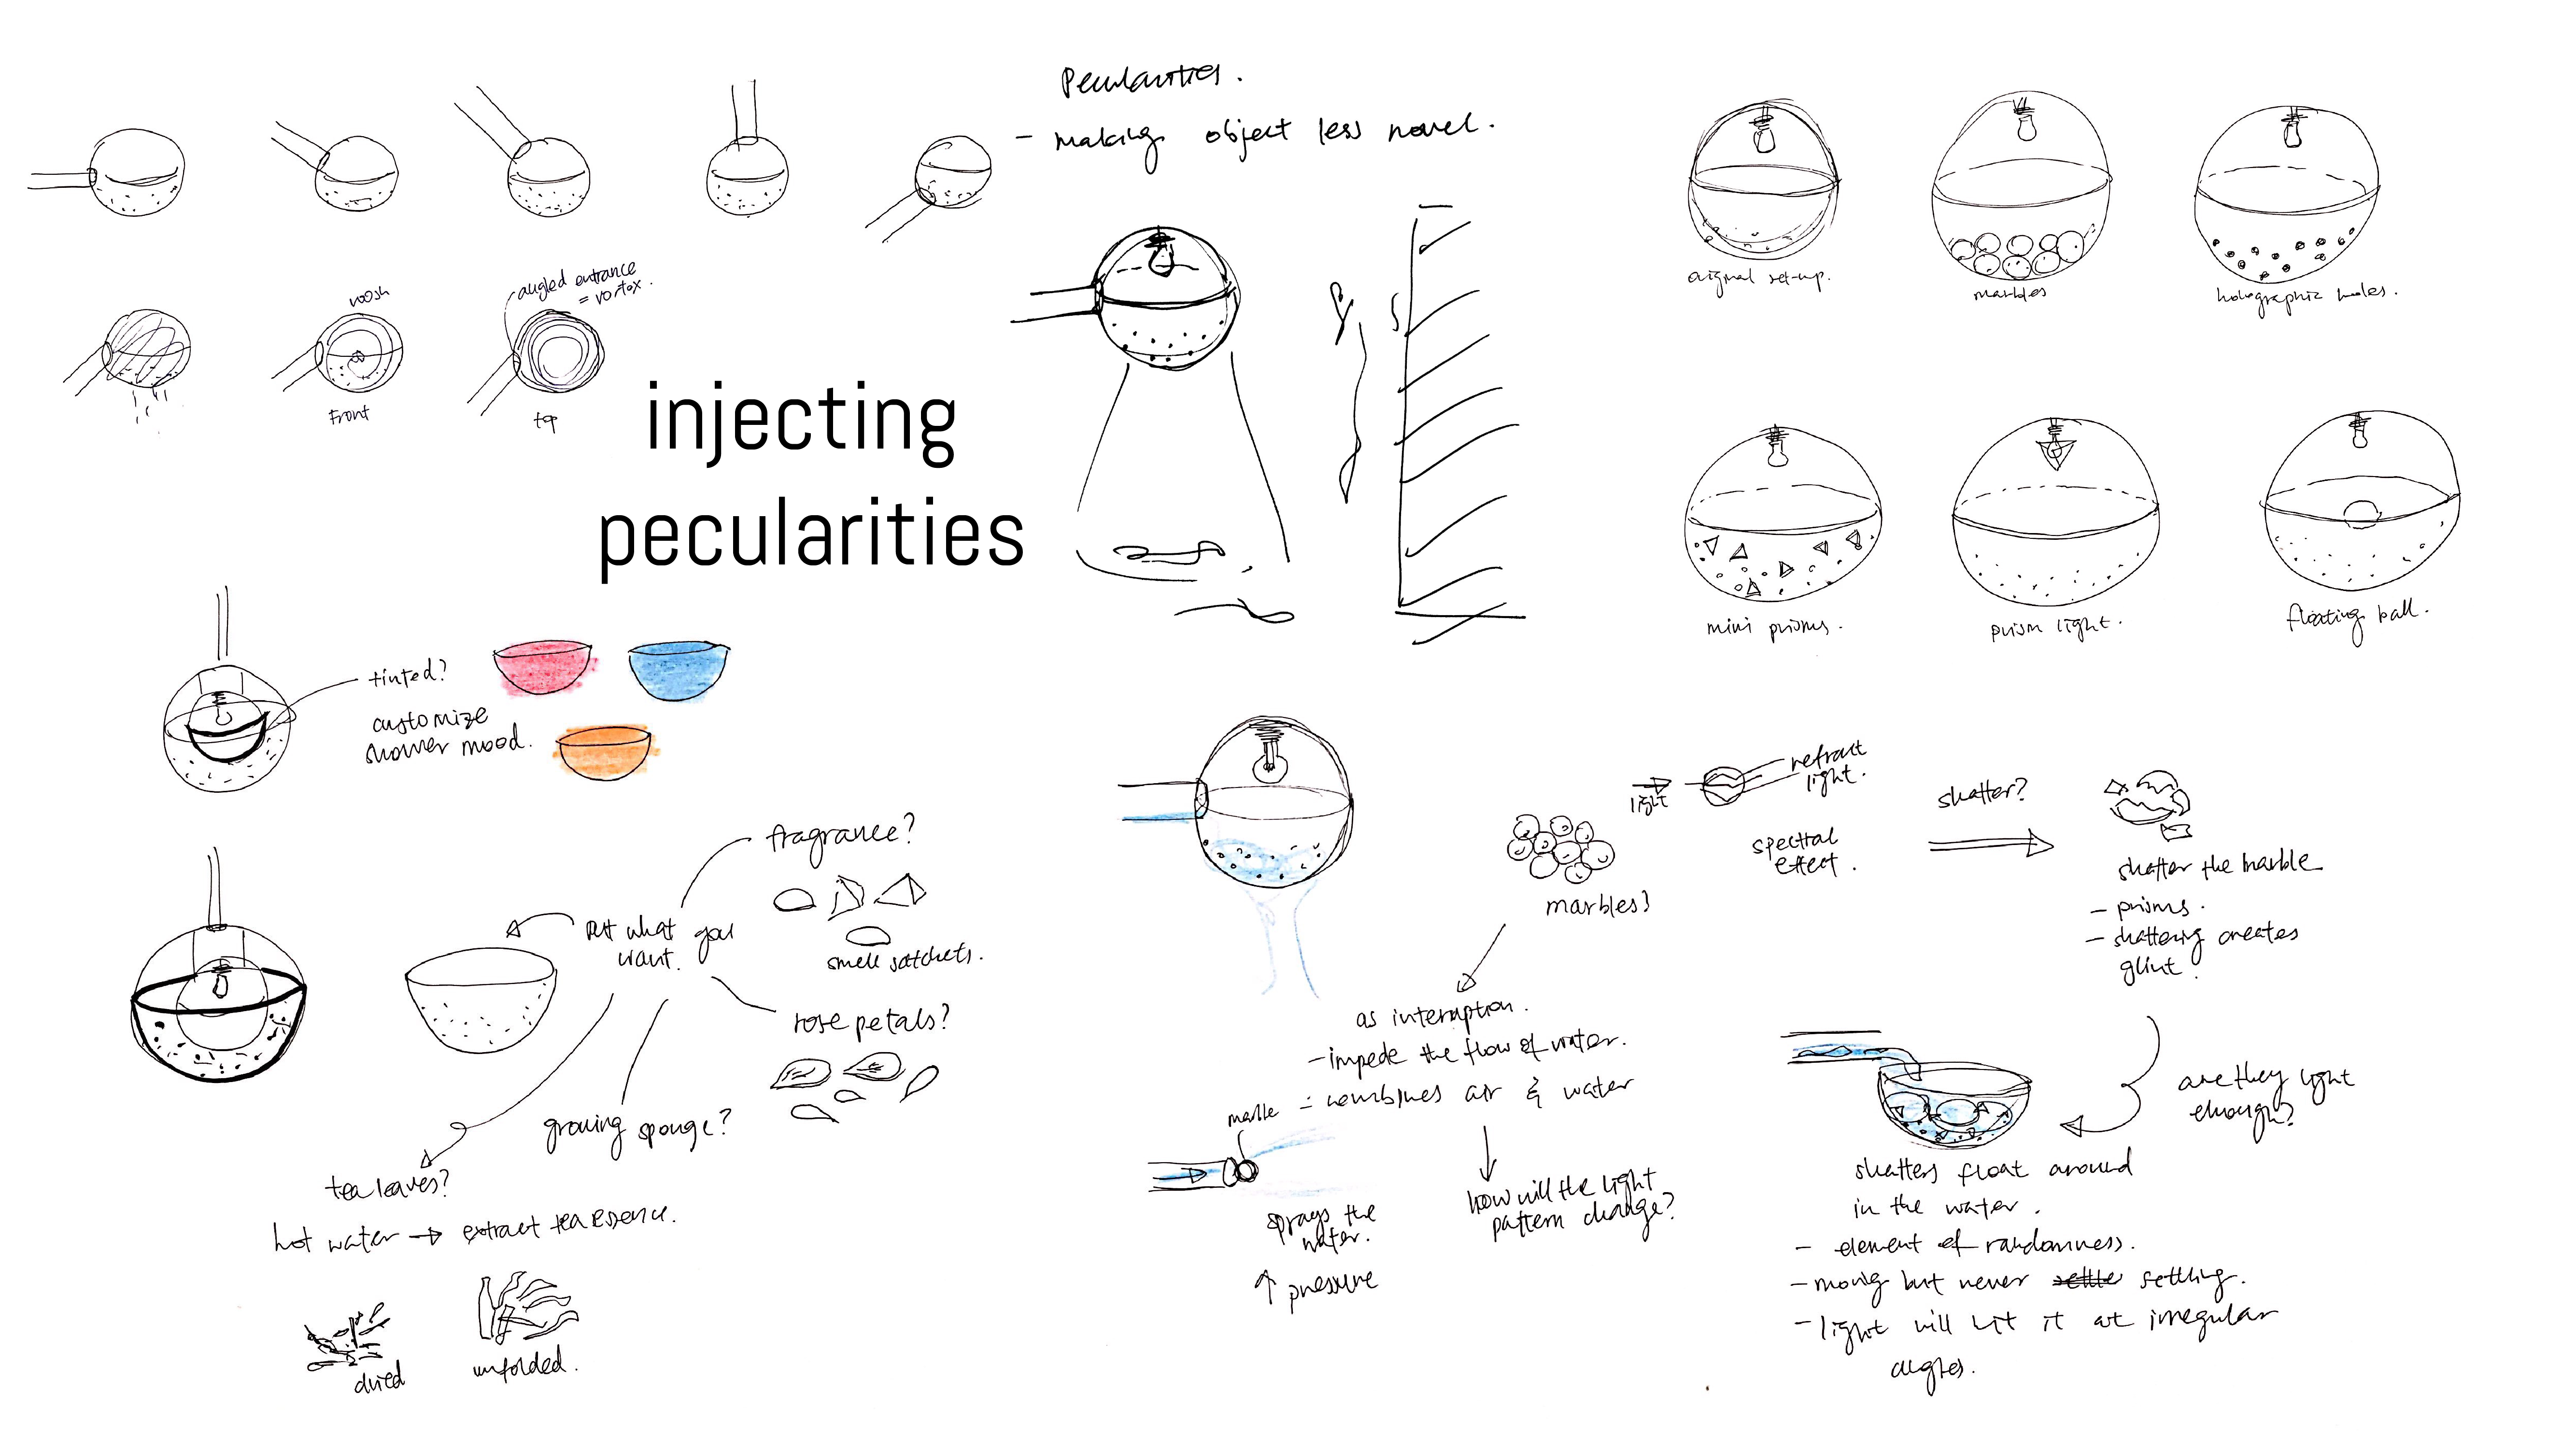 Pecularities.
- making object less novel.
voosh
angled entrance
= vortex.
Front
top
injecting
pecularities
original set-up.
marbles
holographic holes.
mini prisms.
prism light.
floating ball.
tinted?
customize
shower mood.
fragrance?
put what you
want.
smell satchets.
rose petals?
growing sponge?
tea leaves?
hot water → extract tea essence.
dried
unfolded.
light
refract
light.
marbles?
spectral
effect.
shatter?
shatter the marble
- prisms.
- shattering creates
glint.
as interruption.
- impede the flow of water.
= combines air & water
marble
sprays the
water.
↑ pressure
how will the light
pattern change?
are they light
enough?
shatters float around
in the water.
- element of randomness.
- moving but never settle settling.
- light will hit it at irregular
angles.